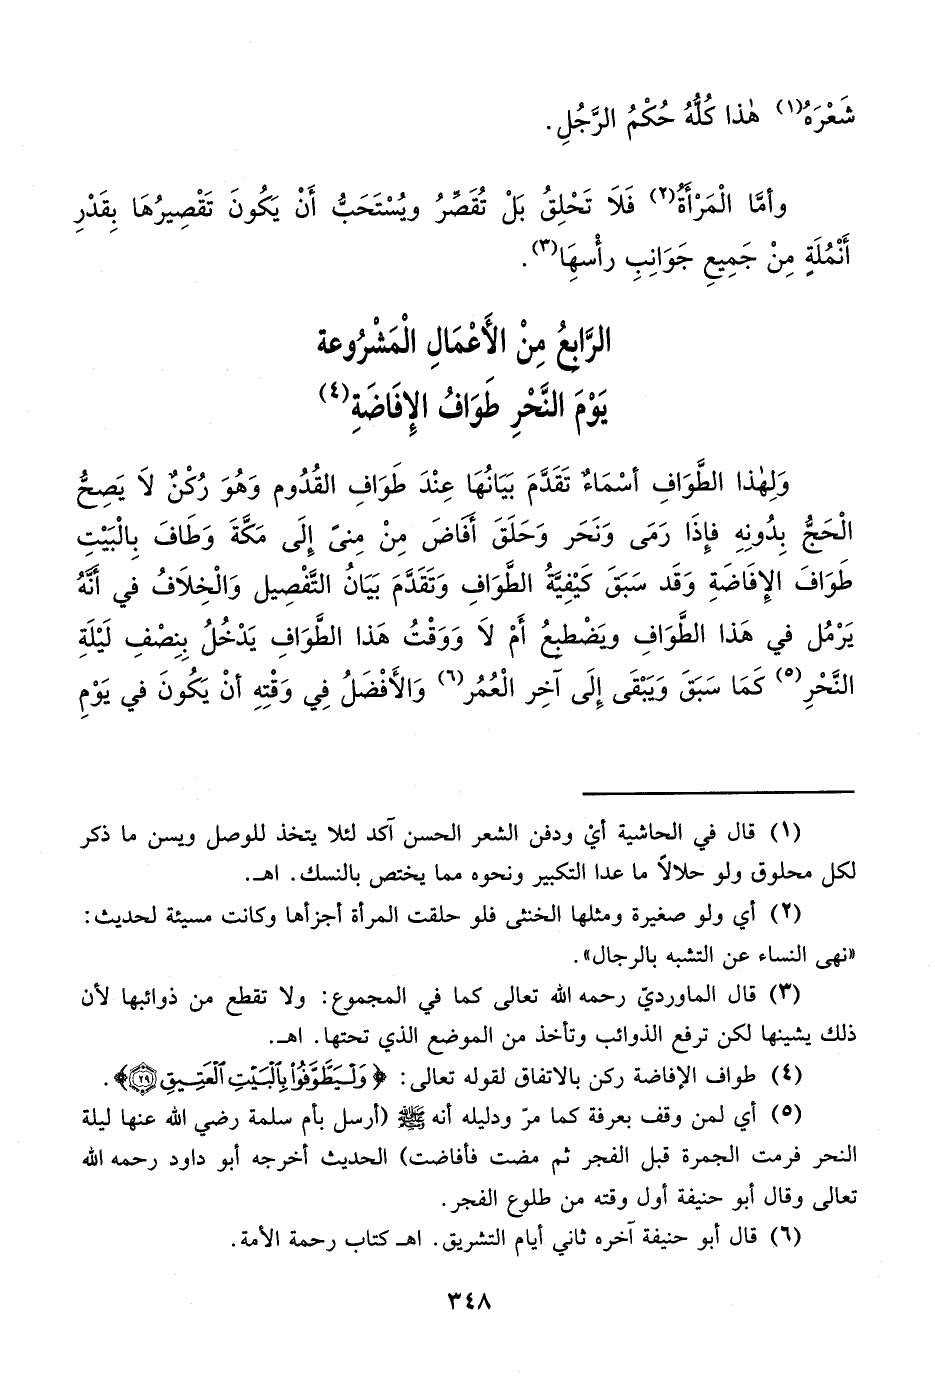 شَعْرَهُ(١) هٰذا كُلُّهُ حُكْمُ الرَّجُلِ.
وأمَّا الْمَرْأَةُ(٢) فَلَا تَحْلِقُ بَلْ تُقَصِّرُ ويُسْتَحَبُّ أَنْ يَكُونَ تَقْصِيرُهَا بِقَدْرِ
أَنْمُلَةٍ مِنْ جَمِيعِ جَوَانِبِ رأْسِهَا(٣).
الرَّابِعُ مِنْ الأَعْمَالِ الْمَشْرُوعة
يَوْمَ النَّحْرِ طَوَافُ الإِفَاضَةِ(٤)
وَلِهٰذا الطَّوَافِ أسْمَاءٌ تَقَدَّمَ بَيَانُهَا عِنْدَ طَوَافِ القُدُوم وَهُوَ رُكْنٌ لَا يَصِحُّ
الْحَجُّ بِدُونِهِ فإِذَا رَمَى وَنَحَر وَحَلَقَ أَفَاضَ مِنْ مِنىً إِلَى مَكَّةَ وَطَافَ بِالْبَيْتِ
طَوَافَ الإِفَاضَةِ وَقَد سَبَقَ كَيْفِيَّةُ الطَّوَافِ وَتَقَدَّمَ بَيَانُ التَّفْصِيل وَالْخِلَافُ في أَنَّهُ
يَرْمُل في هَذَا الطَّوَافِ ويَضْطبعُ أَمْ لَا وَوَقْتُ هَذا الطَّوَافِ يَدْخُلُ بِنِصْفِ لَيْلَةِ
النَّحْرِ(٥) كَمَا سَبَقَ وَيَبْقَى إِلَى آخِرِ الْعُمُر(٦) وَالأَفْضَلُ فِي وَقْتِهِ أنْ يَكُونَ في يَوْمِ
(١) قال في الحاشية أيْ ودفن الشعر الحسن آكد لئلا يتخذ للوصل ويسن ما ذكر
لكل محلوق ولو حلالاً ما عدا التكبير ونحوه مما يختص بالنسك. اهـ.
(٢) أي ولو صغيرة ومثلها الخنثى فلو حلقت المرأة أجزأها وكانت مسيئة لحديث:
«نهى النساء عن التشبه بالرجال».
(٣) قال الماورديّ رحمه الله تعالى كما في المجموع: ولا تقطع من ذوائبها لأن
ذلك يشينها لكن ترفع الذوائب وتأخذ من الموضع الذي تحتها. اهـ.
(٤) طواف الإفاضة ركن بالاتفاق لقوله تعالى: ﴿وَلْيَطَّوَّفُوا۟ بِٱلْبَيْتِ ٱلْعَتِيقِ ٢٩﴾.
(٥) أي لمن وقف بعرفة كما مرّ ودليله أنه ﷺ (أرسل بأم سلمة رضي الله عنها ليلة
النحر فرمت الجمرة قبل الفجر ثم مضت فأفاضت) الحديث أخرجه أبو داود رحمه الله
تعالى وقال أبو حنيفة أول وقته من طلوع الفجر.
(٦) قال أبو حنيفة آخره ثاني أيام التشريق. اهـ كتاب رحمة الأمة.
٣٤٨